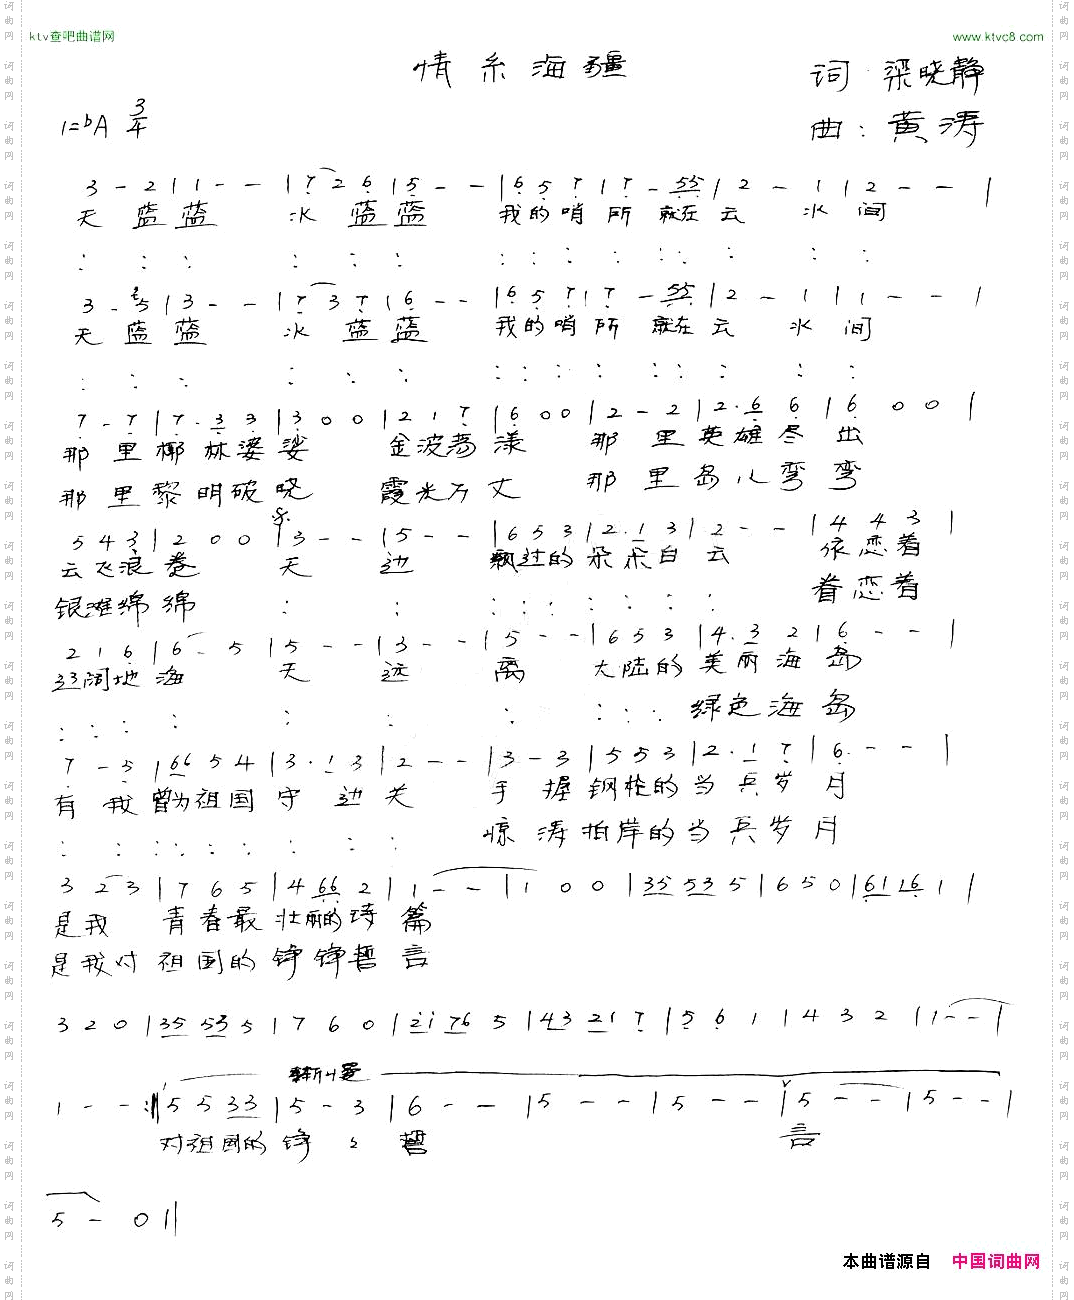 ktv查吧曲谱网
www.ktvc8.com
情系海疆
词：梁晓静
1=bA 3/4
曲：黄涛
3 - 2 | 1 - - | 7 2 6 | 5 - - | 6 5 7 | 7 - 55 | 2 - 1 | 2 - - |
天 蓝 蓝 水 蓝 蓝 我的哨 所 就在云 水 间
3 - 5 | 3 - - | 7 3 7 | 6 - - | 6 5 7 | 7 - 55 | 2 - 1 | 1 - - |
天 蓝 蓝 水 蓝 蓝 我的哨 所 就在云 水 间
7 - 7 | 7 · 3 3 | 3 0 0 | 2 1 7 | 6 0 0 | 2 - 2 | 2 · 6 6 | 6 0 0 |
那 里 椰 林婆娑 金波荡漾 那 里英雄尽出
那 里 黎 明破晓 霞光万丈 那 里岛儿弯弯
5 4 3 | 2 0 0 | 3 - - | 5 - - | 6 5 3 | 2 · 1 3 | 2 - - | 4 4 3 |
云飞浪卷 天 边 飘过的朵朵白云 依恋着
银滩绵绵 眷恋着
2 1 6 | 6 - 5 | 5 - - | 3 - - | 5 - - | 6 5 3 | 4 · 3 2 | 6 - - |
辽阔地海 天 远 离 大陆的美丽海岛
绿色海岛
7 - 5 | 66 5 4 | 3 · 1 3 | 2 - - | 3 - 3 | 5 5 3 | 2 · 1 7 | 6 - - |
有 我曾为祖国守 边关 手 握钢枪的当兵岁月
惊 涛拍岸的当兵岁月
3 2 3 | 7 6 5 | 4 66 2 | 1 - - | 1 0 0 | 35 53 5 | 6 5 0 | 61 16 1 |
是我 青春最壮丽的诗篇
是我对祖国的铮铮誓言
3 2 0 | 35 53 5 | 7 6 0 | 2i 76 5 | 43 21 7 | 5 6 1 | 4 3 2 | 1 - - |
渐慢
1 - - :‖ 5 5 33 | 5 - 3 | 6 - - | 5 - - | 5 - - | 5 - - | 5 - - |
对祖国的铮 铮 誓 言
5 - 0 ‖
本曲谱源自 中国词曲网